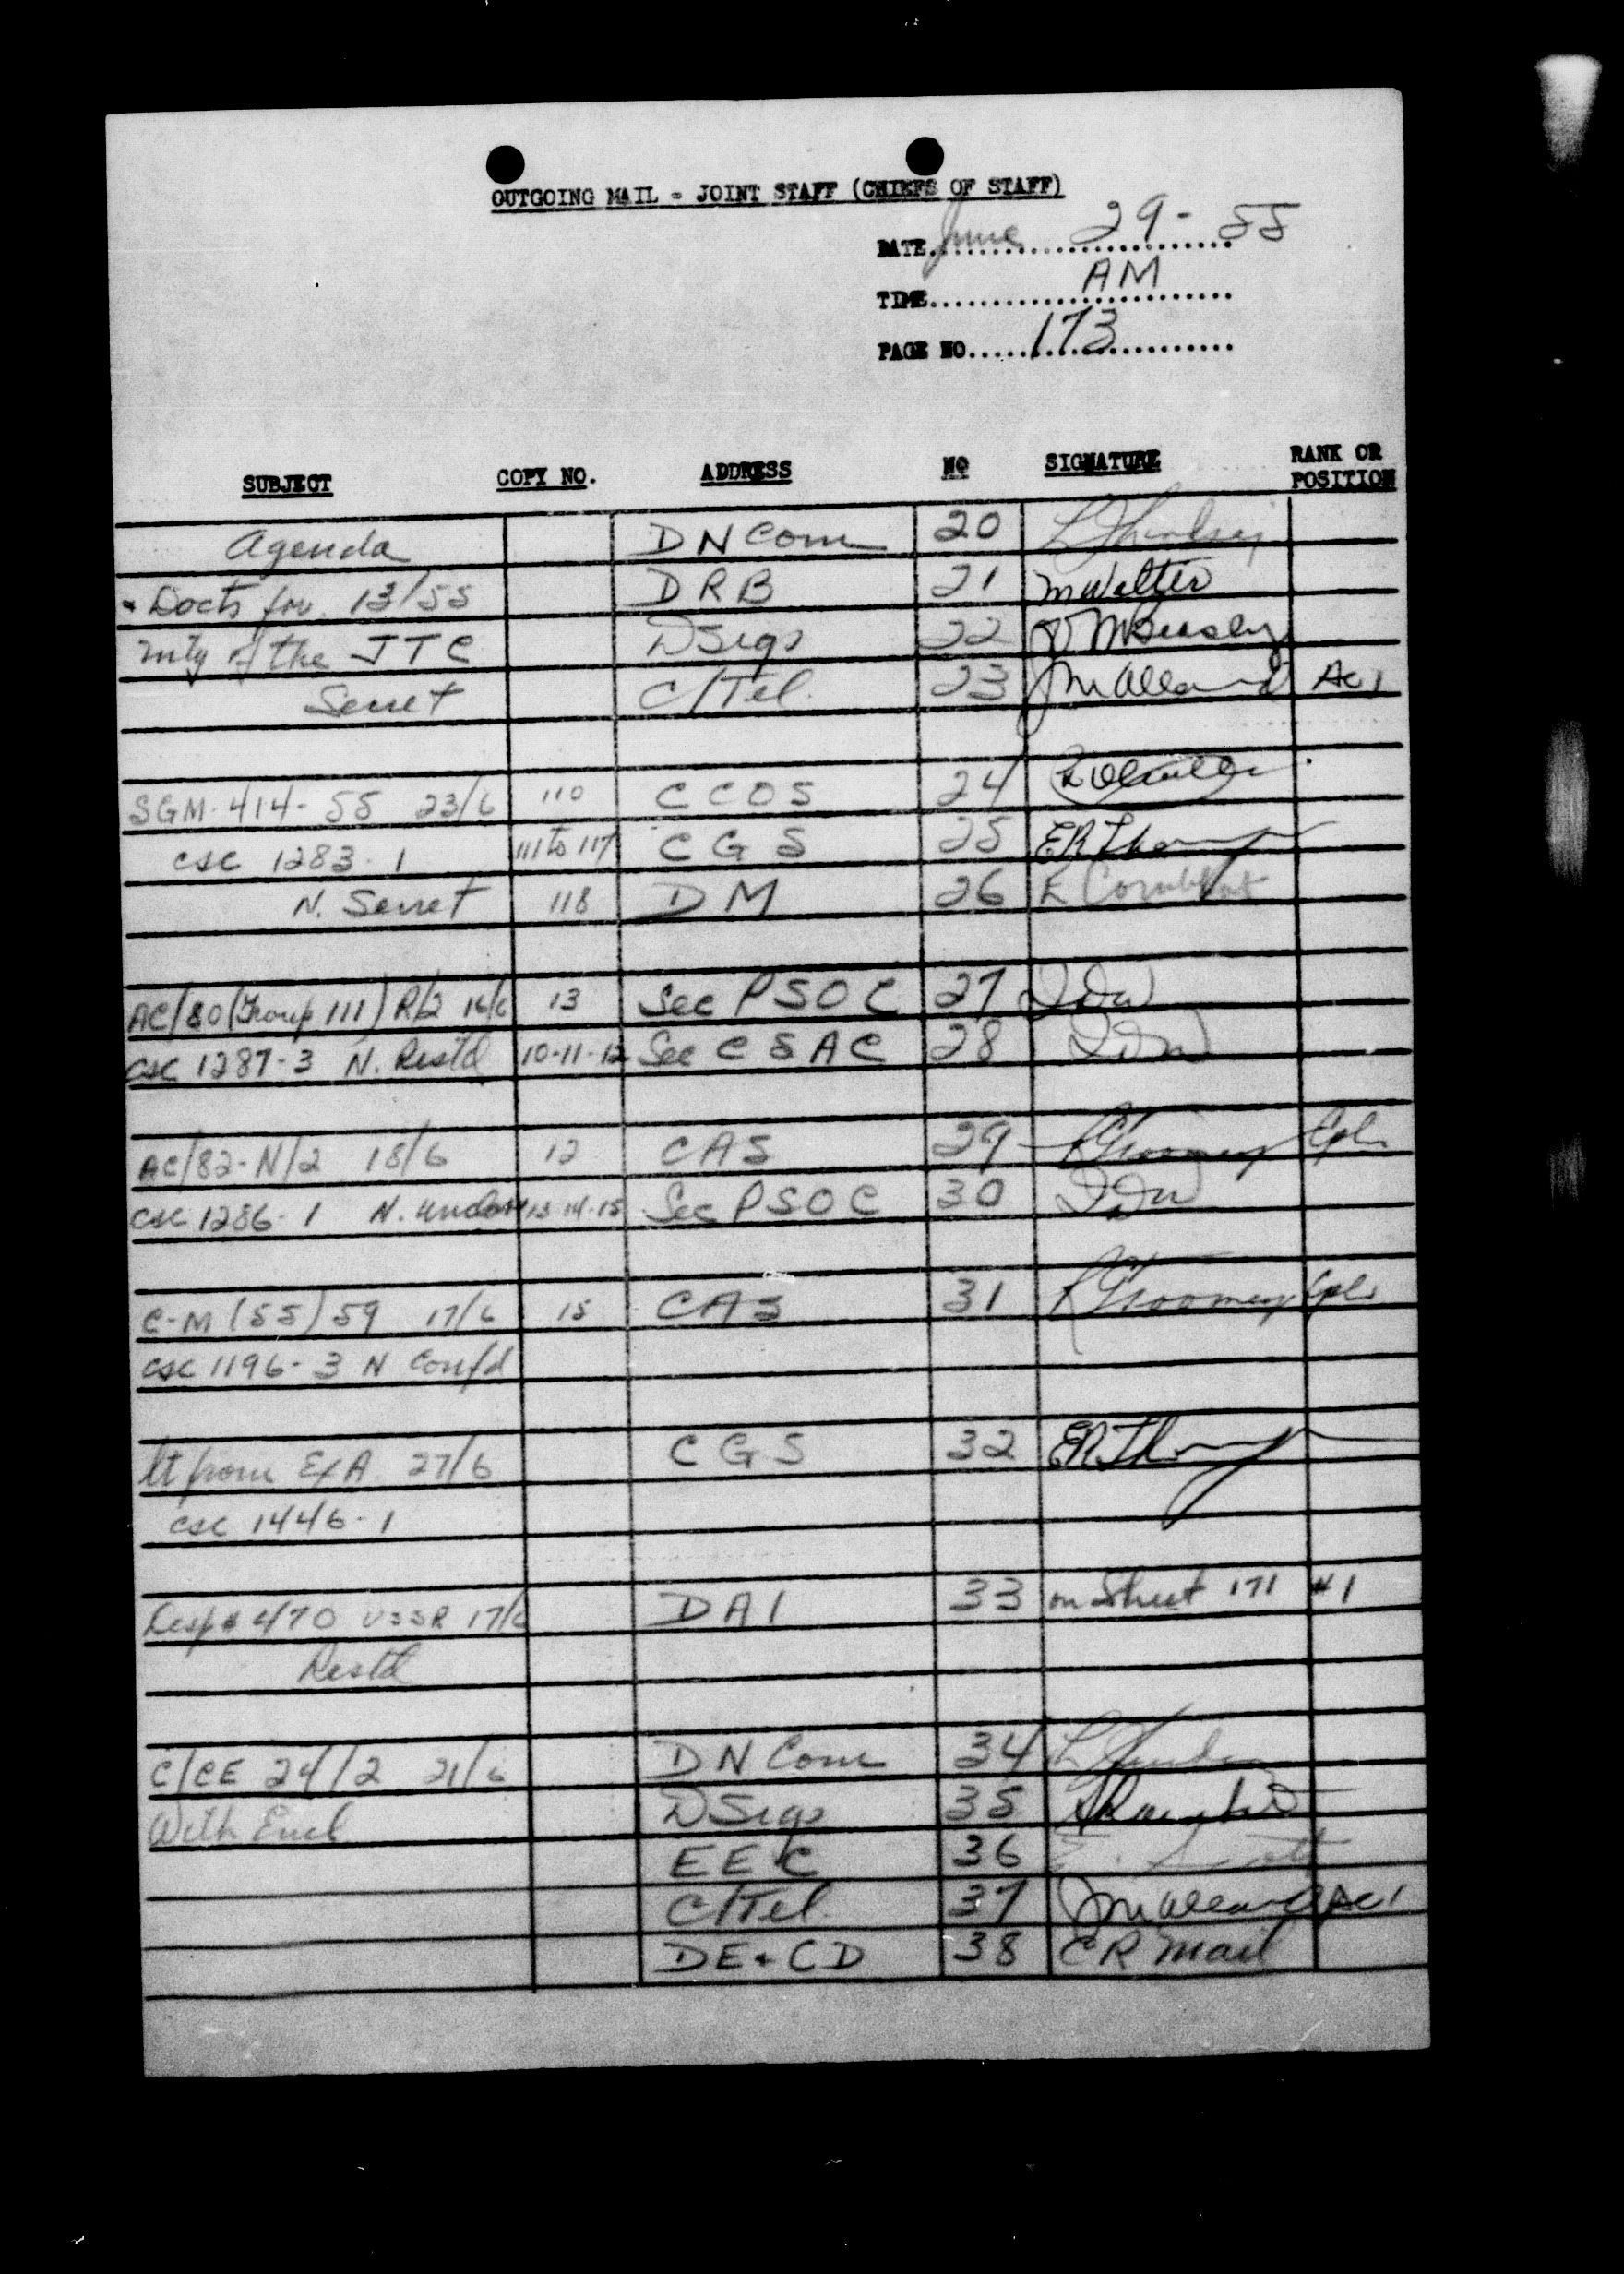 OUTGOING MAIL - JOINT STAFF (CHIEFS OF STAFF)
DATE June 29-55
TIME AM
PAGE NO. 173
SUBJECT COPY NO. ADDRESS NO SIGNATURE RANK OR POSITION
Agenda DN Com 20
& Docts for 13/55 DRB 21 M Walter
mtg of the JTC DSigs 22
Secret C/Tel. 23 AC1
SGM-414-55 23/6 110 CCOS 24
CSC 1283-1 111 to 117 CGS 25
N. Secret 118 DM 26
AC/80 (Group 111) R/2 16/6 13 Sec PSOC 27
CSC 1287-3 N. Restd 10-11-12 Sec C&AC 28
AC/82-N/2 18/6 12 CAS 29 Cpl.
CSC 1286-1 N. 13-14-15 Sec PSOC 30
C-M (55) 59 17/6 15 CAS 31 Cpl.
CSC 1196-3 N Confd
lt from ExA 27/6 CGS 32
CSC 1446-1
Desp # 470 USSR 17/6 DAI 33 on Sheet 171 #1
Restd
C/CE 24/2 21/6 DN Com 34
With Encl DSigs 35
EEC 36
C/Tel. 37 AC1
DE & CD 38 CR Mail